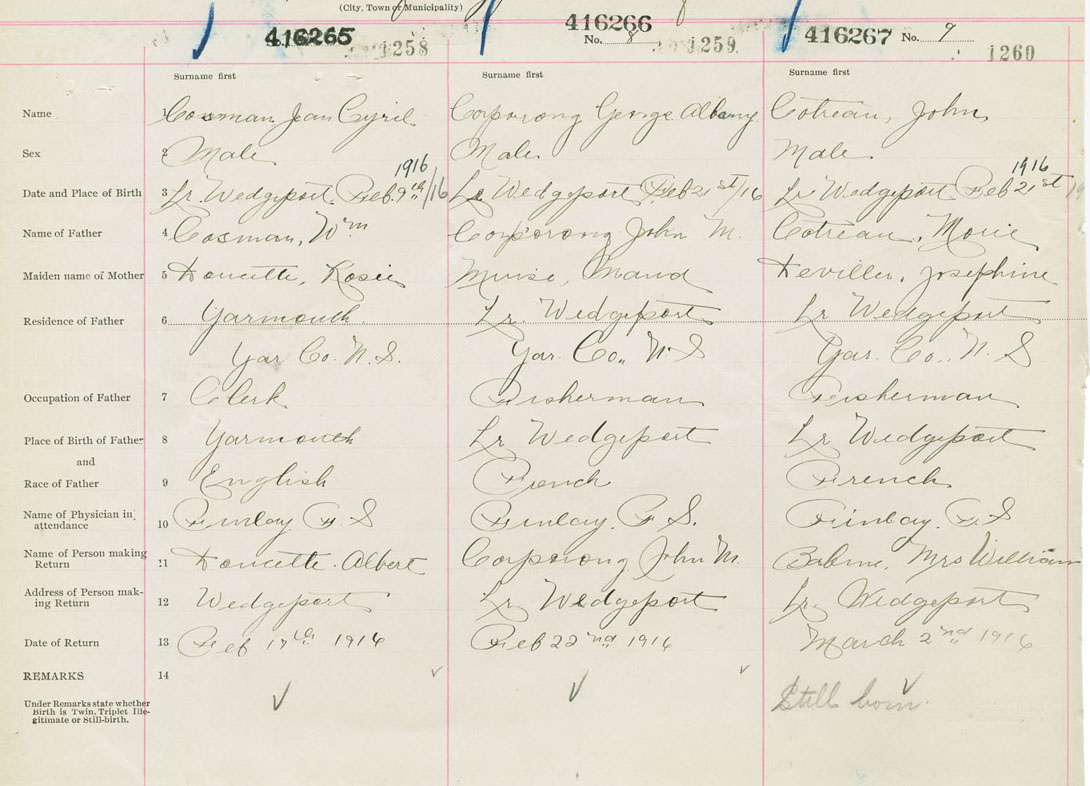 (City, Town or Municipality)
416265 1258
416266 No. 8 1259
416267 No. 9 1260
Surname first Surname first Surname first
Name 1 Cosman Jean Cyril Corporong George Albany Cotreau, John
Sex 2 Male Male Male
1916 1916
Date and Place of Birth 3 Lr. Wedgeport. Feb. 9th/16 Lr Wedgeport Feb 21st/16 Lr Wedgeport Feb 21st
Name of Father 4 Cosman, Wm Corporong John M. Cotreau,
Maiden name of Mother 5 Doucette, Rosie Muise, Maud Deviller, Josephine
Residence of Father 6 Yarmouth Lr. Wedgeport Lr Wedgeport
Yar Co. N.S. Yar. Co., N. S Yar. Co., N. S
Occupation of Father 7 Clerk Fisherman Fisherman
Place of Birth of Father 8 Yarmouth Lr Wedgeport Lr Wedgeport
and
Race of Father 9 English French French
Name of Physician in attendance 10 Finlay. F. S Finlay. F S. Finlay. F. S
Name of Person making Return 11 Doucette. Albert Corporong John M. Mrs William
Address of Person making Return 12 Wedgeport Lr Wedgeport Lr. Wedgeport
Date of Return 13 Feb 17th 1916 Feb 22nd 1916 March 2nd 1916
REMARKS 14
Under Remarks state whether Birth is Twin, Triplet Illegitimate or Still-birth. Still born.